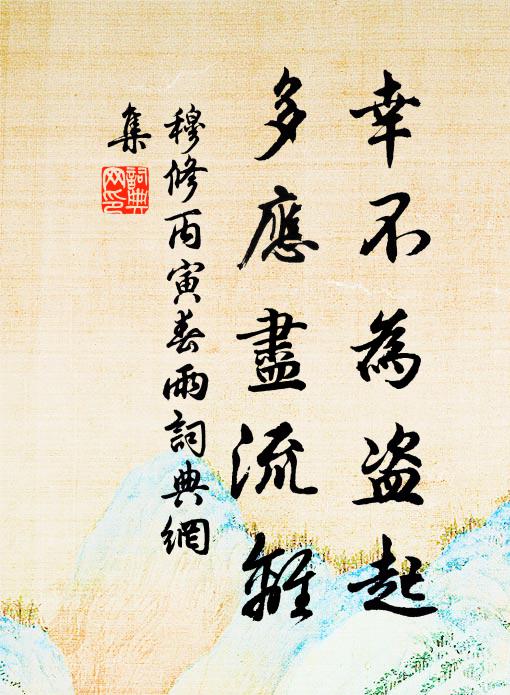 幸不為盗起
多應盡流離
穆修丙寅春雨詞典網
集
詞典網印